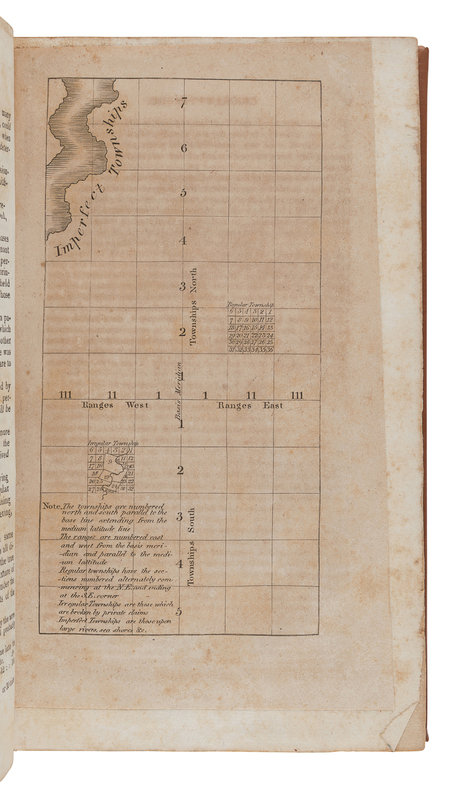 7
Imperfect Townships
6
5
4
3
Townships North
2
Regular Township
6 5 4 3 2 1
7 8 9 10 11 12
18 17 16 15 14 13
19 20 21 22 23 24
30 29 28 27 26 25
31 32 33 34 35 36
1
Basis Meridian
III II 1 1 II III
Ranges West Ranges East
1
Irregular Township
6 5 4 3 2 1
2
Note. The townships are numbered
north and south parallel to the
base line extending from the
medium latitude line
The ranges are numbered east
and west from the basis meri-
-dian and parallel to the medi-
-um latitude
Regular townships have the sec-
-tions numbered alternately com-
mencing at the N.E. and ending
at the S.E. corner
Irregular Townships are those which
are broken by private claims
Imperfect Townships are those upon
large rivers, sea shores &c.
3
Townships South
4
5